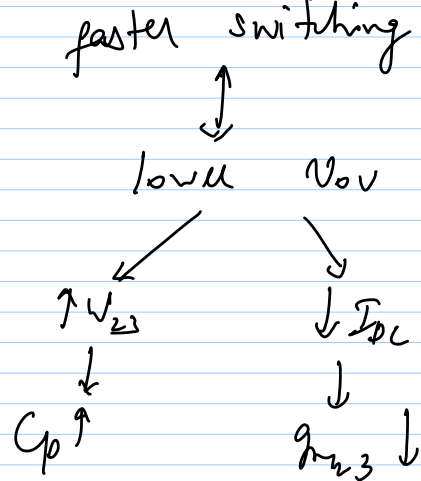 faster switching
↕
lower Vov
↙ ↘
↑ W23 ↓ IDC
↓ ↓
Cp ↑ gm23 ↓